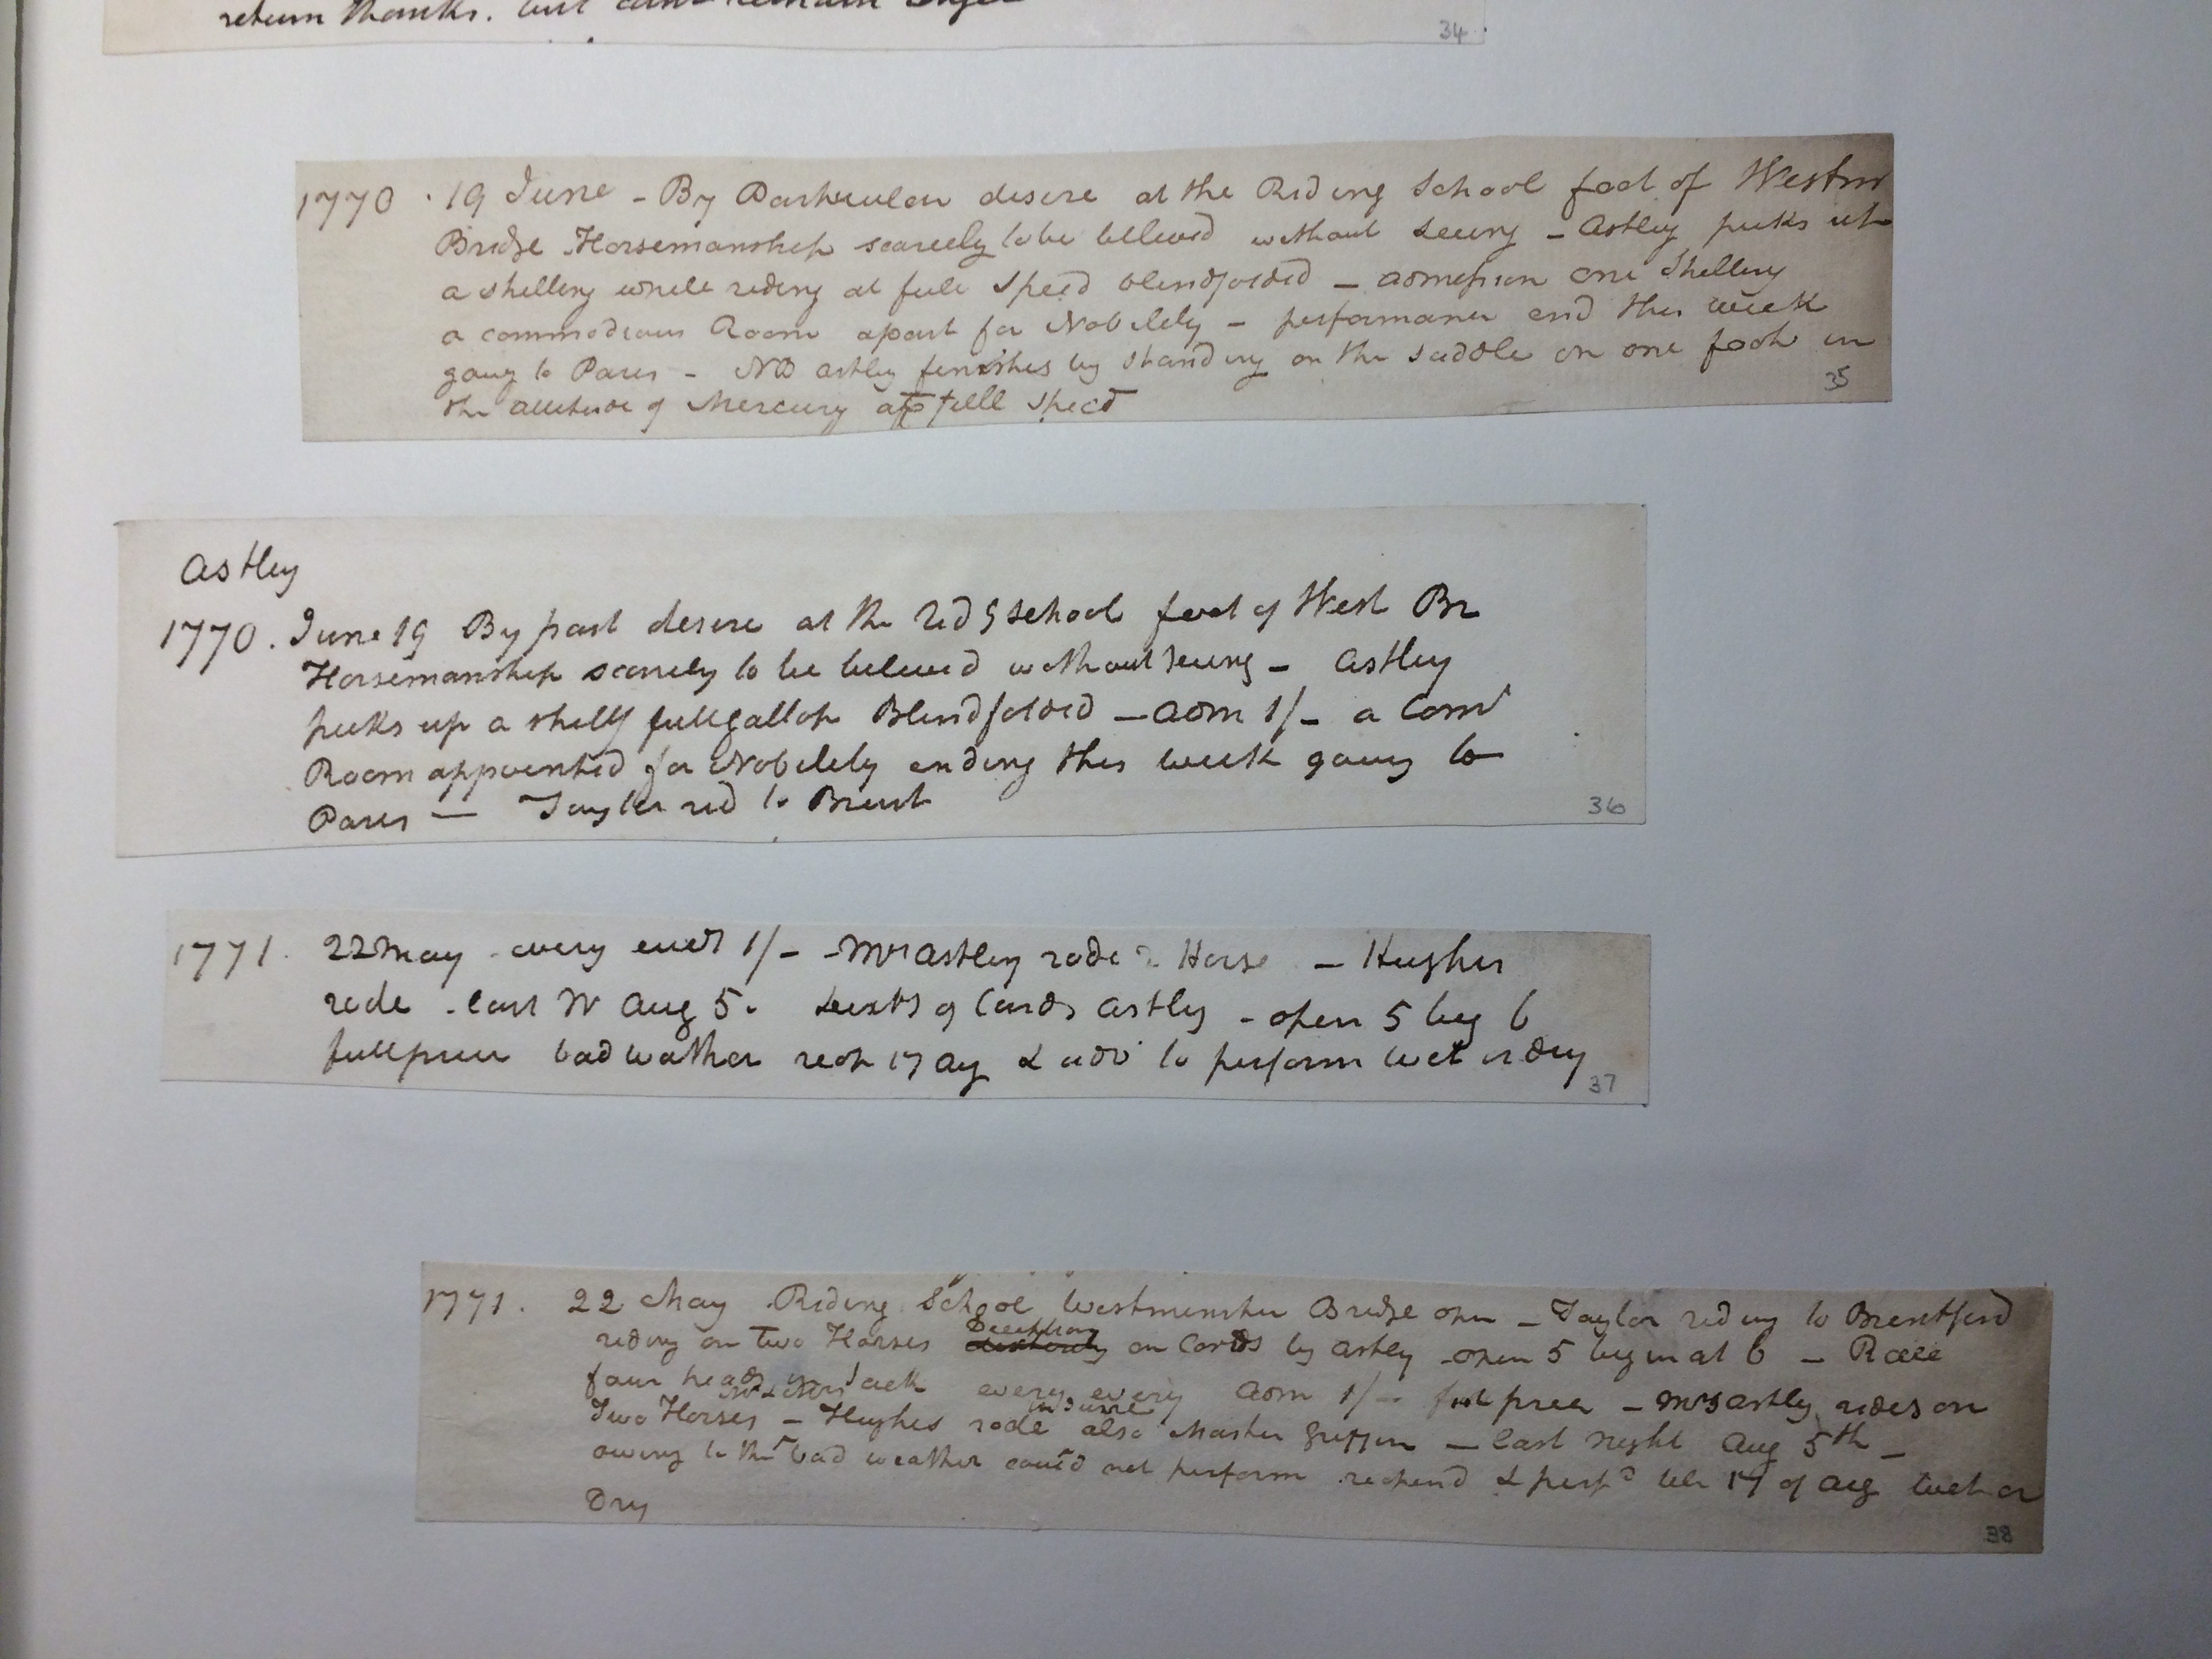 return thanks. but cant remain longer
34
1770 . 19 June - By Particular desire at the Riding School foot of Westmr
Bridge Horsemanship scarcely to be believed without seeing - Astley picks up
a shilling while riding at full speed blindfolded - admission one shilling
a commodious Room apart for Nobility - performance end this week
going to Paris - NB Astley finishes by standing on the saddle on one foot in
the attitude of Mercury at full speed
35
Astley
1770 . June 19 By part desire at the Rid g school foot of West Br
Horsemanship scarcely to be believed without seeing - Astley
picks up a shillg full gallop Blindfolded - adm 1/- a Comd
Room appointed for Nobility ending this week going to
Paris - Taylor rid to Brent
36
1771 . 22 May - every eveg 1/- - Mrs Astley rode 2 Horse - Hughes
rode - last N Aug 5. of Cards Astley - open 5 beg 6
full price bad weather reop 17 Ag & adv to perform wet or dry
37
1771 . 22 May Riding School Westminster Bridge open - Taylor riding to Brentford
Deception
riding on two Horses dexterity on Cards by Astley - open 5 begin at 6 -
four heads Jack every every adm 1/- full price - Mrs Astley rides on
in June
Two Horses - Hughes rode also Master Griffin - last night Aug 5th -
owing to the bad weather could not perform reopend & perfd till 17 of Aug wet or
Dry
38